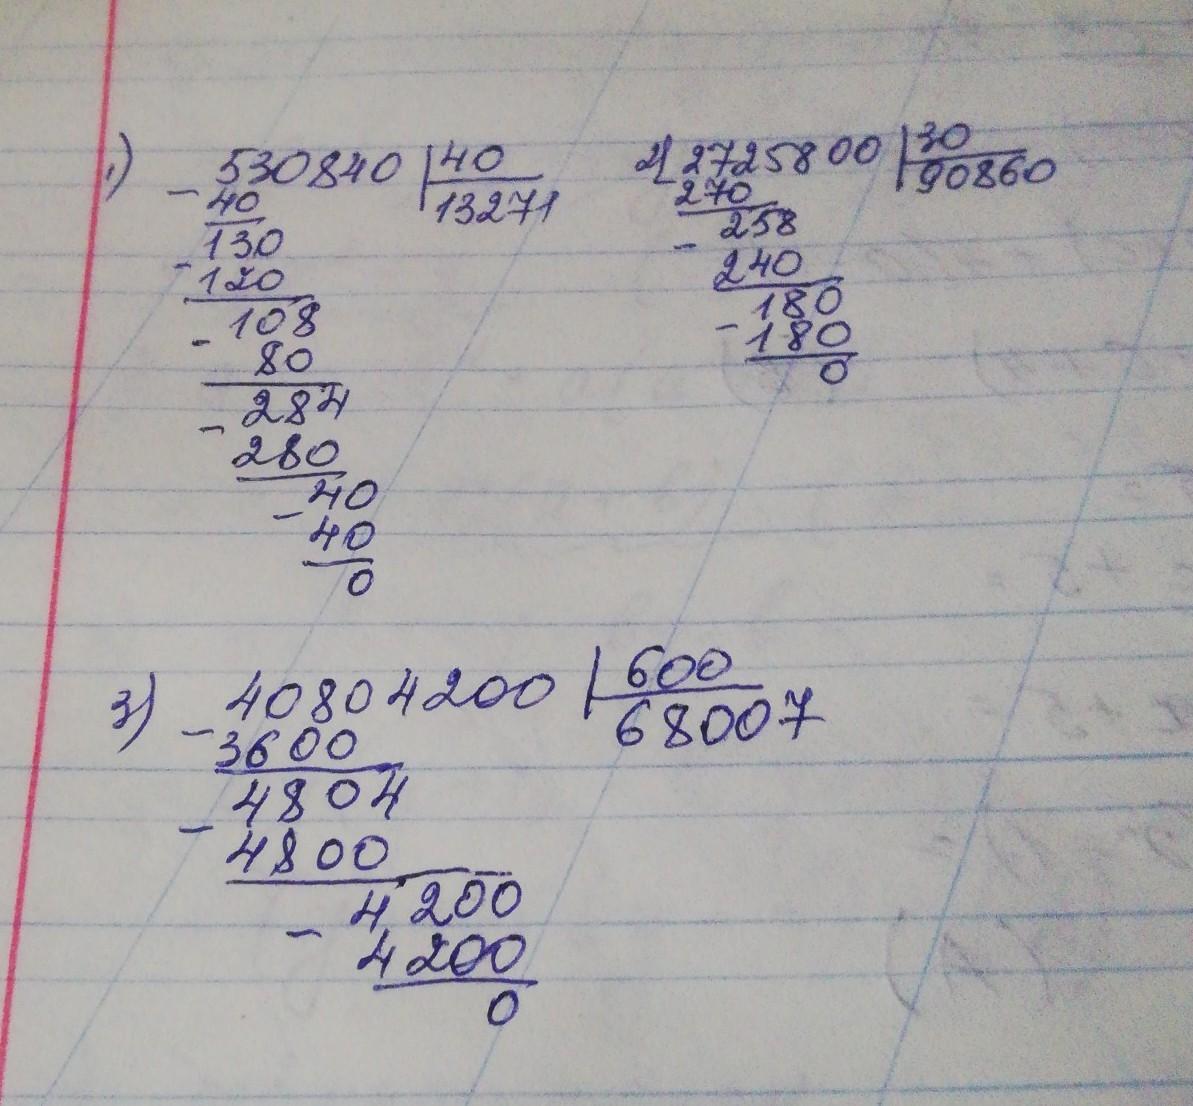 1) 530840 | 40
- 40 13271
130
- 120
108
- 80
284
- 280
40
- 40
0
2) 2725800 | 30
270 90860
258
- 240
180
- 180
0
3) 40804200 | 600
- 3600 68007
4804
- 4800
4200
- 4200
0